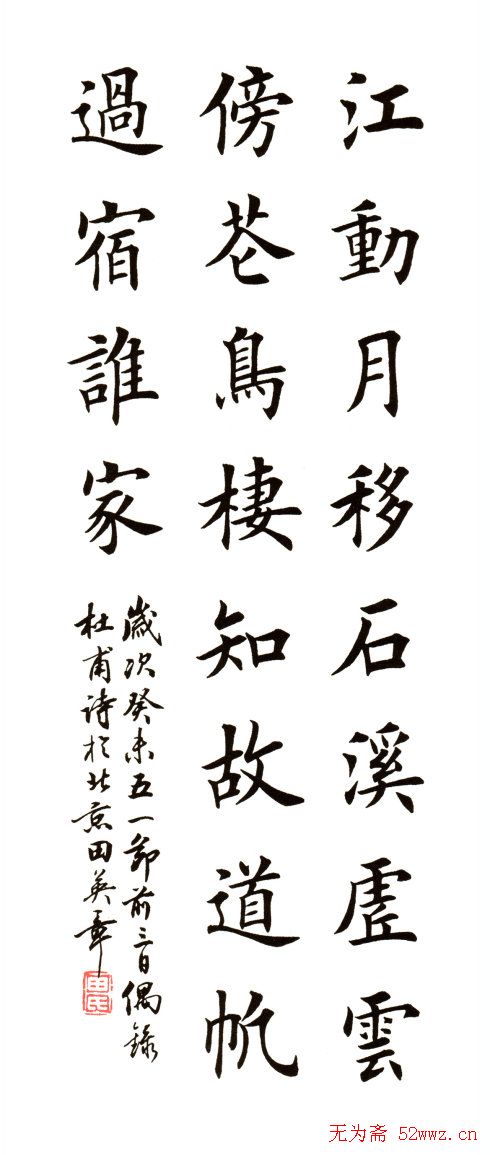 江動月移石溪虛雲
傍花鳥棲知故道帆
過宿誰家
歲次癸未五一節前三日偶錄
杜甫詩於北京田英章
田氏
无为斋 52wwz.cn